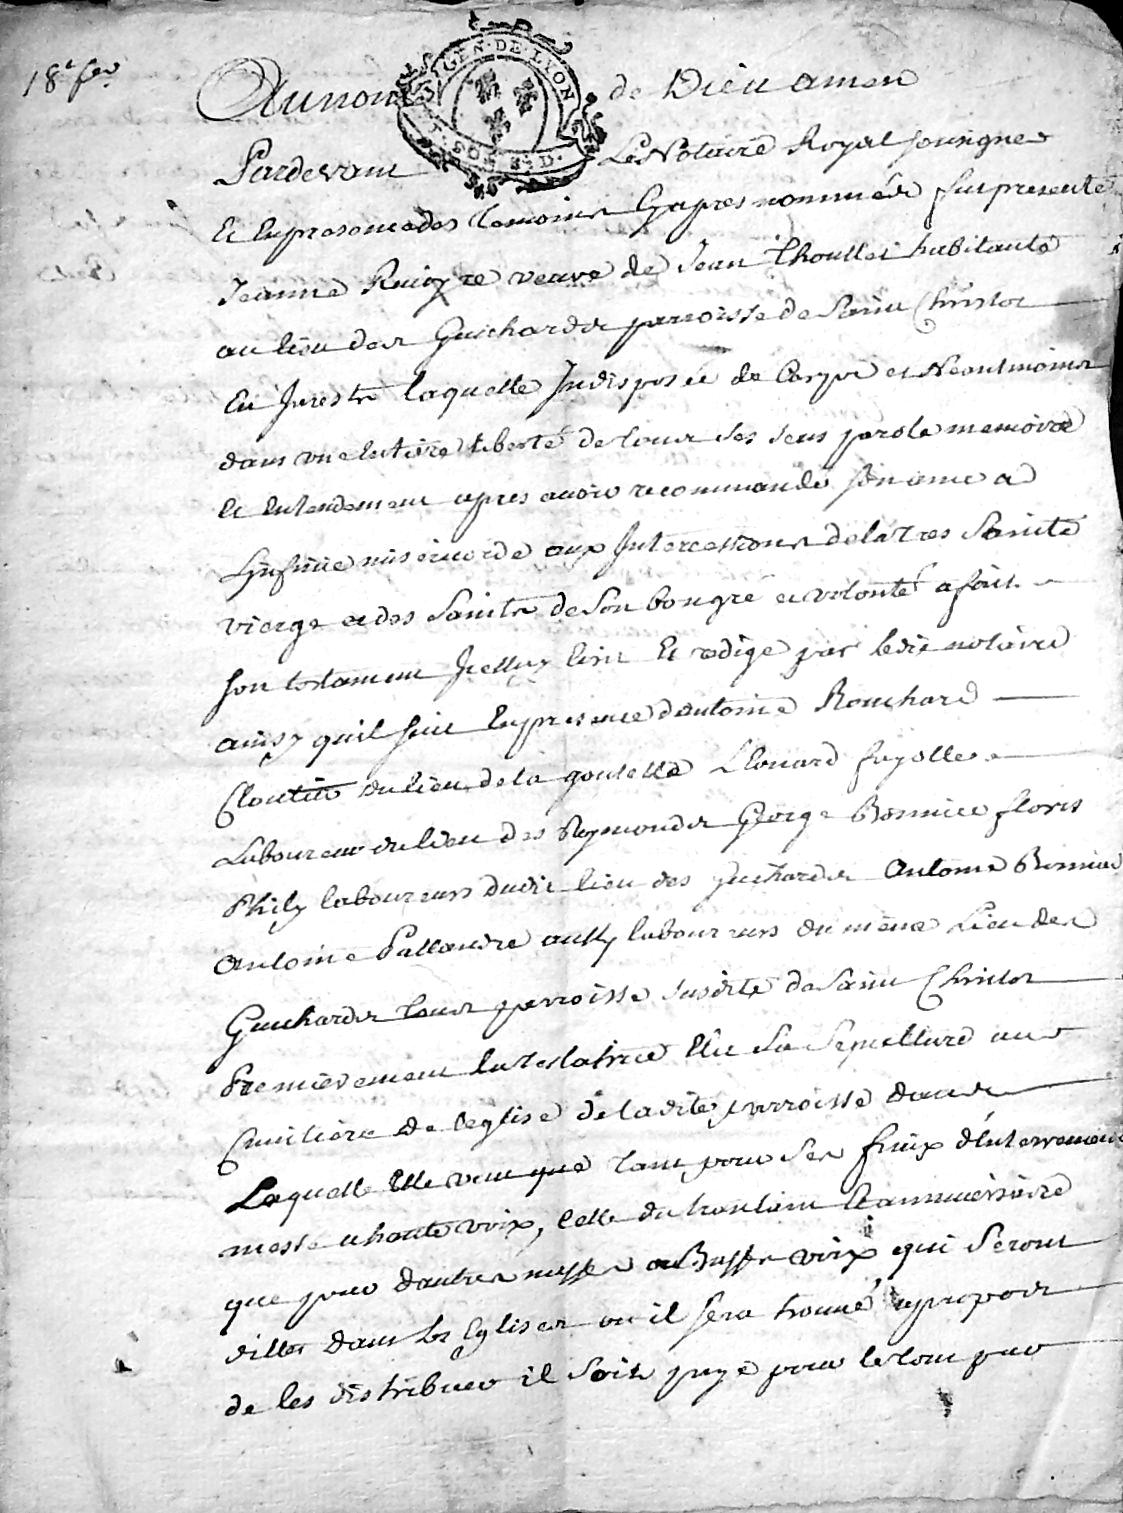 18e fev
Au nom de Dieu amen
Pardevant Le Notaire Royal sousigne
Et En presence des temoins Cy apres nommés fut presente
Jeanne veuve de Jean Thoullet habitante
au lieu des Guichardes parroisse de Saint Christot
En Jarest laquelle Indisposée de Corps et Neantmoins
dans une Entiere liberté de tous ses sens parole memoire
Et Entendement apres avoir recommandé son ame a
L'infinie misericorde aux Intercessions de la Tres Sainte
vierge et des Saints de son bon gré et volonté a fait
son testament Icelluy Ecrit Et redigé par ledit notaire
ainsy quil suit En presence d'Antoine Rouchard
Cloutier du lieu de la goutelle Leonard fayolle
Laboureur du lieu des Reymondes George Bonnice floris
Phily laboureurs dudit lieu des guichardes Antoine Bonnice
Antoine Pallandre aussy laboureurs du meme Lieu des
Guichardes tous parroisse susdite de Saint Christot
Premierement la testatrice Elit sa Sepulture au
Cimitiere de l'eglise de ladite parroisse dans
Laquelle Elle veut que tant pour ses fraix d'Enterrement
messe a haute voix, celle du trentain Et anniversaire
que pour d'autres messes a Basse voix qui seront
dittes dans les Eglises ou il sera trouvé apropos
de les distribuer il soit payé pour le tout par
GEN · DE · LYON